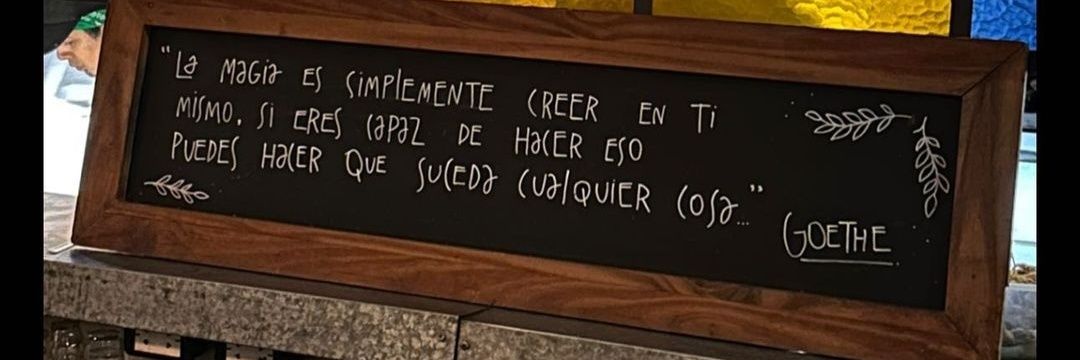 "La magia es simplemente creer en ti
mismo, si eres capaz de hacer eso
puedes hacer que suceda cualquier cosa..."
GOETHE